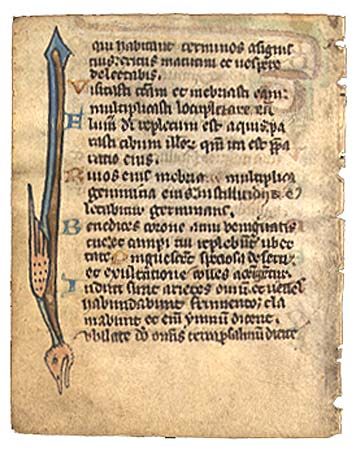 qui habitant terminos a signis
tuis exitus matutini et vespere
delectabis.
Visitasti terram et inebriasti eam
multiplicasti locupletare eam
Flumen di repletum est aquis pa
rasti cibum illor qm ita est ppa
ratio eius.
Rivos eius inebria multiplica
genimina eius in stillicidiis ei
letabitur germinans.
Benedices corone anni benignitatis
tue et campi tui replebunt uber
tate Pinguescent speciosa deserti
et exultatione colles accingentur.
Induti sunt arietes ovium et valles
habundabunt frumento cla
mabunt et eni ymnum dicent.
Iubilate deo omnis terra psalmum dicite